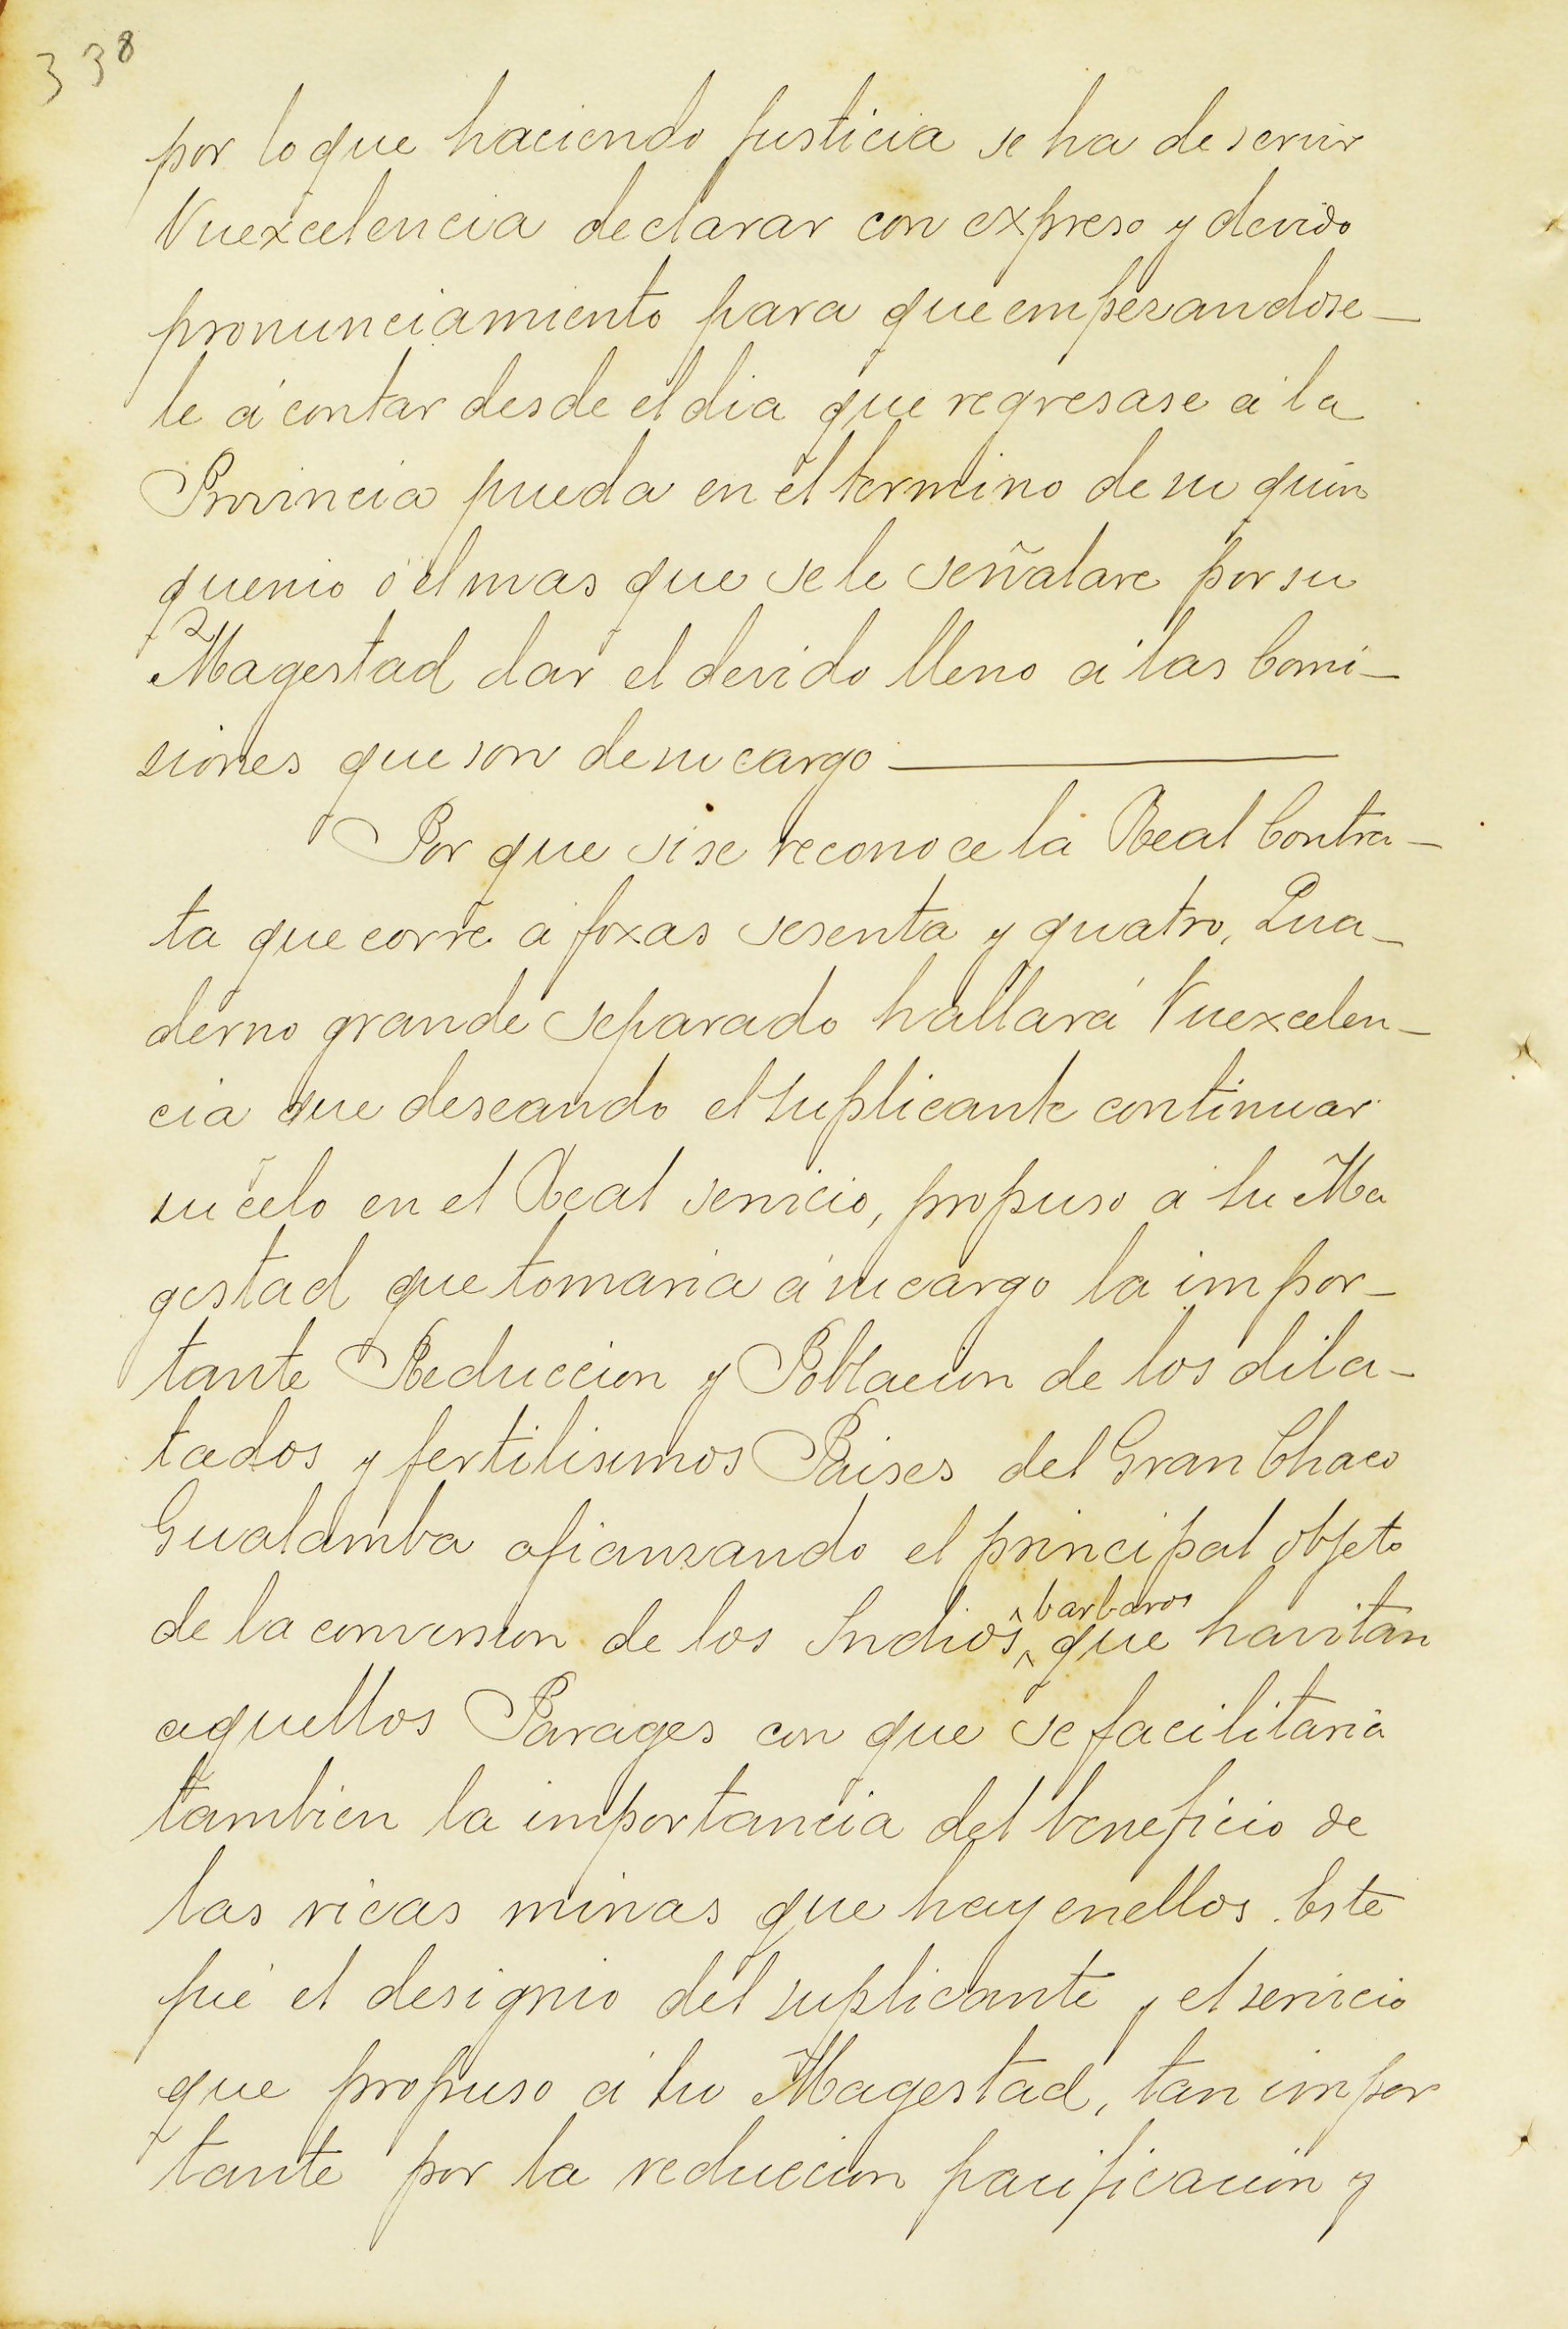 338
por lo que haciendo justicia se ha de servir
Vuexcelencia declarar con expreso y devido
pronunciamiento para que empezandose—
le á contar desde el dia que regresase á la
Provincia pueda en el termino de su quin
quenio ó el mas que se le señalare por su
Magestad dar el devido lleno á las Comi—
siones que son de su cargo ————
Por que si se reconoce la Real Contra—
ta que corre á foxas sesenta y quatro, Qua—
derno grande separado hallará Vuexcelen—
cia que deseando el suplicante continuar
su celo en el Real servicio, propuso á su Ma
gestad que tomaria á su cargo la impor—
tante Reduccion y Poblacion de los dila—
tados y fertilisimos Paises del Gran Chaco
Gualamba afianzando el principal objeto
de la conversion de los Indios barbaros que havitan
aquellos Parages con que se facilitaria
tambien la importancia del beneficio de
las ricas minas que hay en ellos. Este
fué el designio del suplicante y el servicio
que propuso á su Magestad, tan impor
tante por la reduccion pacificacion y